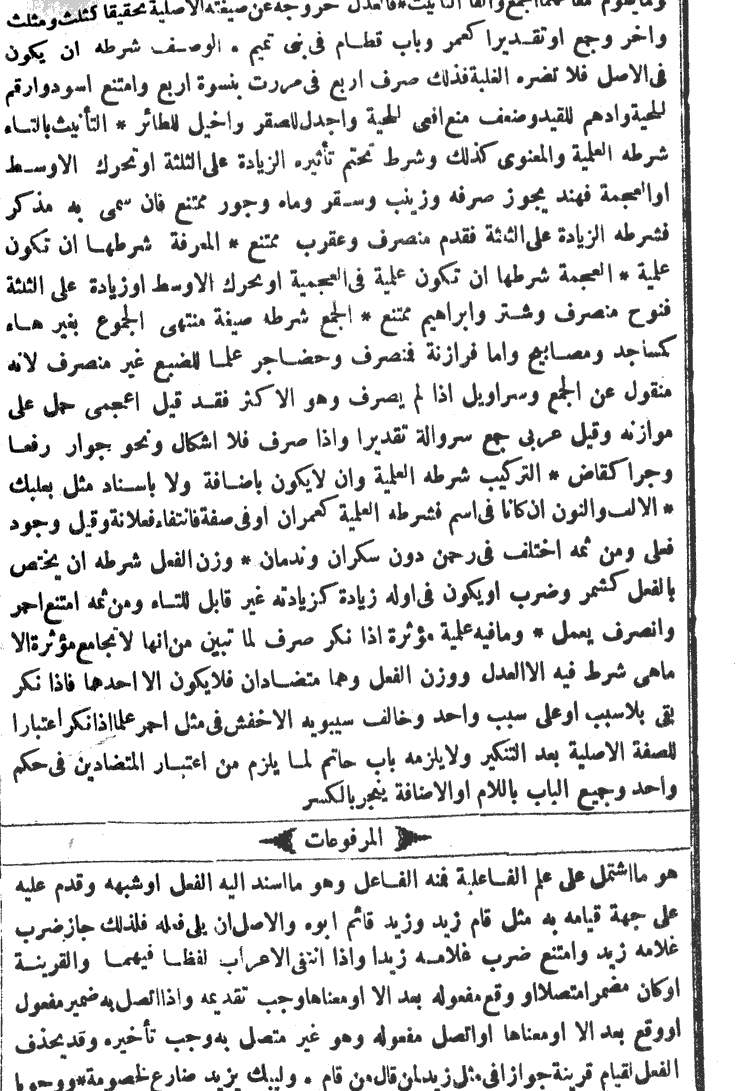 وما يقوم مقامهما الجمع والفا التأنيث * فالعدل خروجه عن صيغته الاصلية تحقيقا كثلث ومثلث
واخر وجمع او تقديرا كعمر وباب قطام فى بنى تميم * الوصف شرطه ان يكون
فى الاصل فلا تضره الغلبة فلذلك صرف اربع فى مررت بنسوة اربع وامتنع اسود وارقم
للحية وادهم للقيد وضعف منع افعى للحية واجدل للصقر واخيل للطائر * التأنيث بالتاء
شرطه العلمية والمعنوى كذلك وشرط تحتم تأثيره الزيادة على الثلثة او تحرك الاوسط
او العجمة فهند يجوز صرفه وزينب وسقر وماه وجور ممتنع فان سمى به مذكر
فشرطه الزيادة على الثلثة فقدم منصرف وعقرب ممتنع * المعرفة شرطها ان تكون
علمية * العجمة شرطها ان تكون علمية فى العجمية او تحرك الاوسط او زيادة على الثلثة
فنوح منصرف وشتر وابراهيم ممتنع * الجمع شرطه صيغة منتهى الجموع بغير هاء
كمساجد ومصابيح واما فرازنة فمنصرف وحضاجر علما للضبع غير منصرف لانه
منقول عن الجمع وسراويل اذا لم يصرف وهو الاكثر فقد قيل اعجمى حمل على
موازنه وقيل عربى جمع سروالة تقديرا واذا صرف فلا اشكال ونحو جوار رفعا
وجرا كقاض * التركيب شرطه العلمية وان لايكون باضافة ولا باسناد مثل بعلبك
* الالف والنون ان كانا فى اسم فشرطه العلمية كعمران او فى صفة فانتفاء فعلانة وقيل وجود
فعلى ومن ثمه اختلف فى رحمن دون سكران وندمان * وزن الفعل شرطه ان يختص
بالفعل كشمر وضرب او يكون فى اوله زيادة كزيادته غير قابل للتاء ومن ثمه امتنع احمر
وانصرف يعمل * ومافيه علمية مؤثرة اذا نكر صرف لما تبين من انها لاتجامع مؤثرة الا
ماهى شرط فيه الا العدل ووزن الفعل وهما متضادان فلايكون الا احدها فاذا نكر
بقى بلاسبب او على سبب واحد وخالف سيبويه الاخفش فى مثل احمر علما اذا نكر اعتبارا
للصفة الاصلية بعد التنكير ولايلزمه باب حاتم لما يلزم من اعتبار المتضادين فى حكم
واحد وجميع الباب باللام او الاضافة ينجر بالكسر
المرفوعات
هو مااشتمل على علم الفاعلية فمنه الفاعل وهو مااسند اليه الفعل او شبهه وقدم عليه
على جهة قيامه به مثل قام زيد وزيد قائم ابوه والاصل ان يلى فعله فلذلك جاز ضرب
غلامه زيد وامتنع ضرب غلامه زيدا واذا انتفى الاعراب لفظا فيهما والقرينة
او كان مضمرا متصلا او وقع مفعوله بعد الا او معناها وجب تقديمه واذا اتصل به ضمير مفعول
او وقع بعد الا او معناها او اتصل مفعوله وهو غير متصل به وجب تأخيره وقد يحذف
الفعل لقيام قرينة جوازا فى مثل زيد لمن قال من قام * وليبك يزيد ضارع لخصومة * ووجوبا